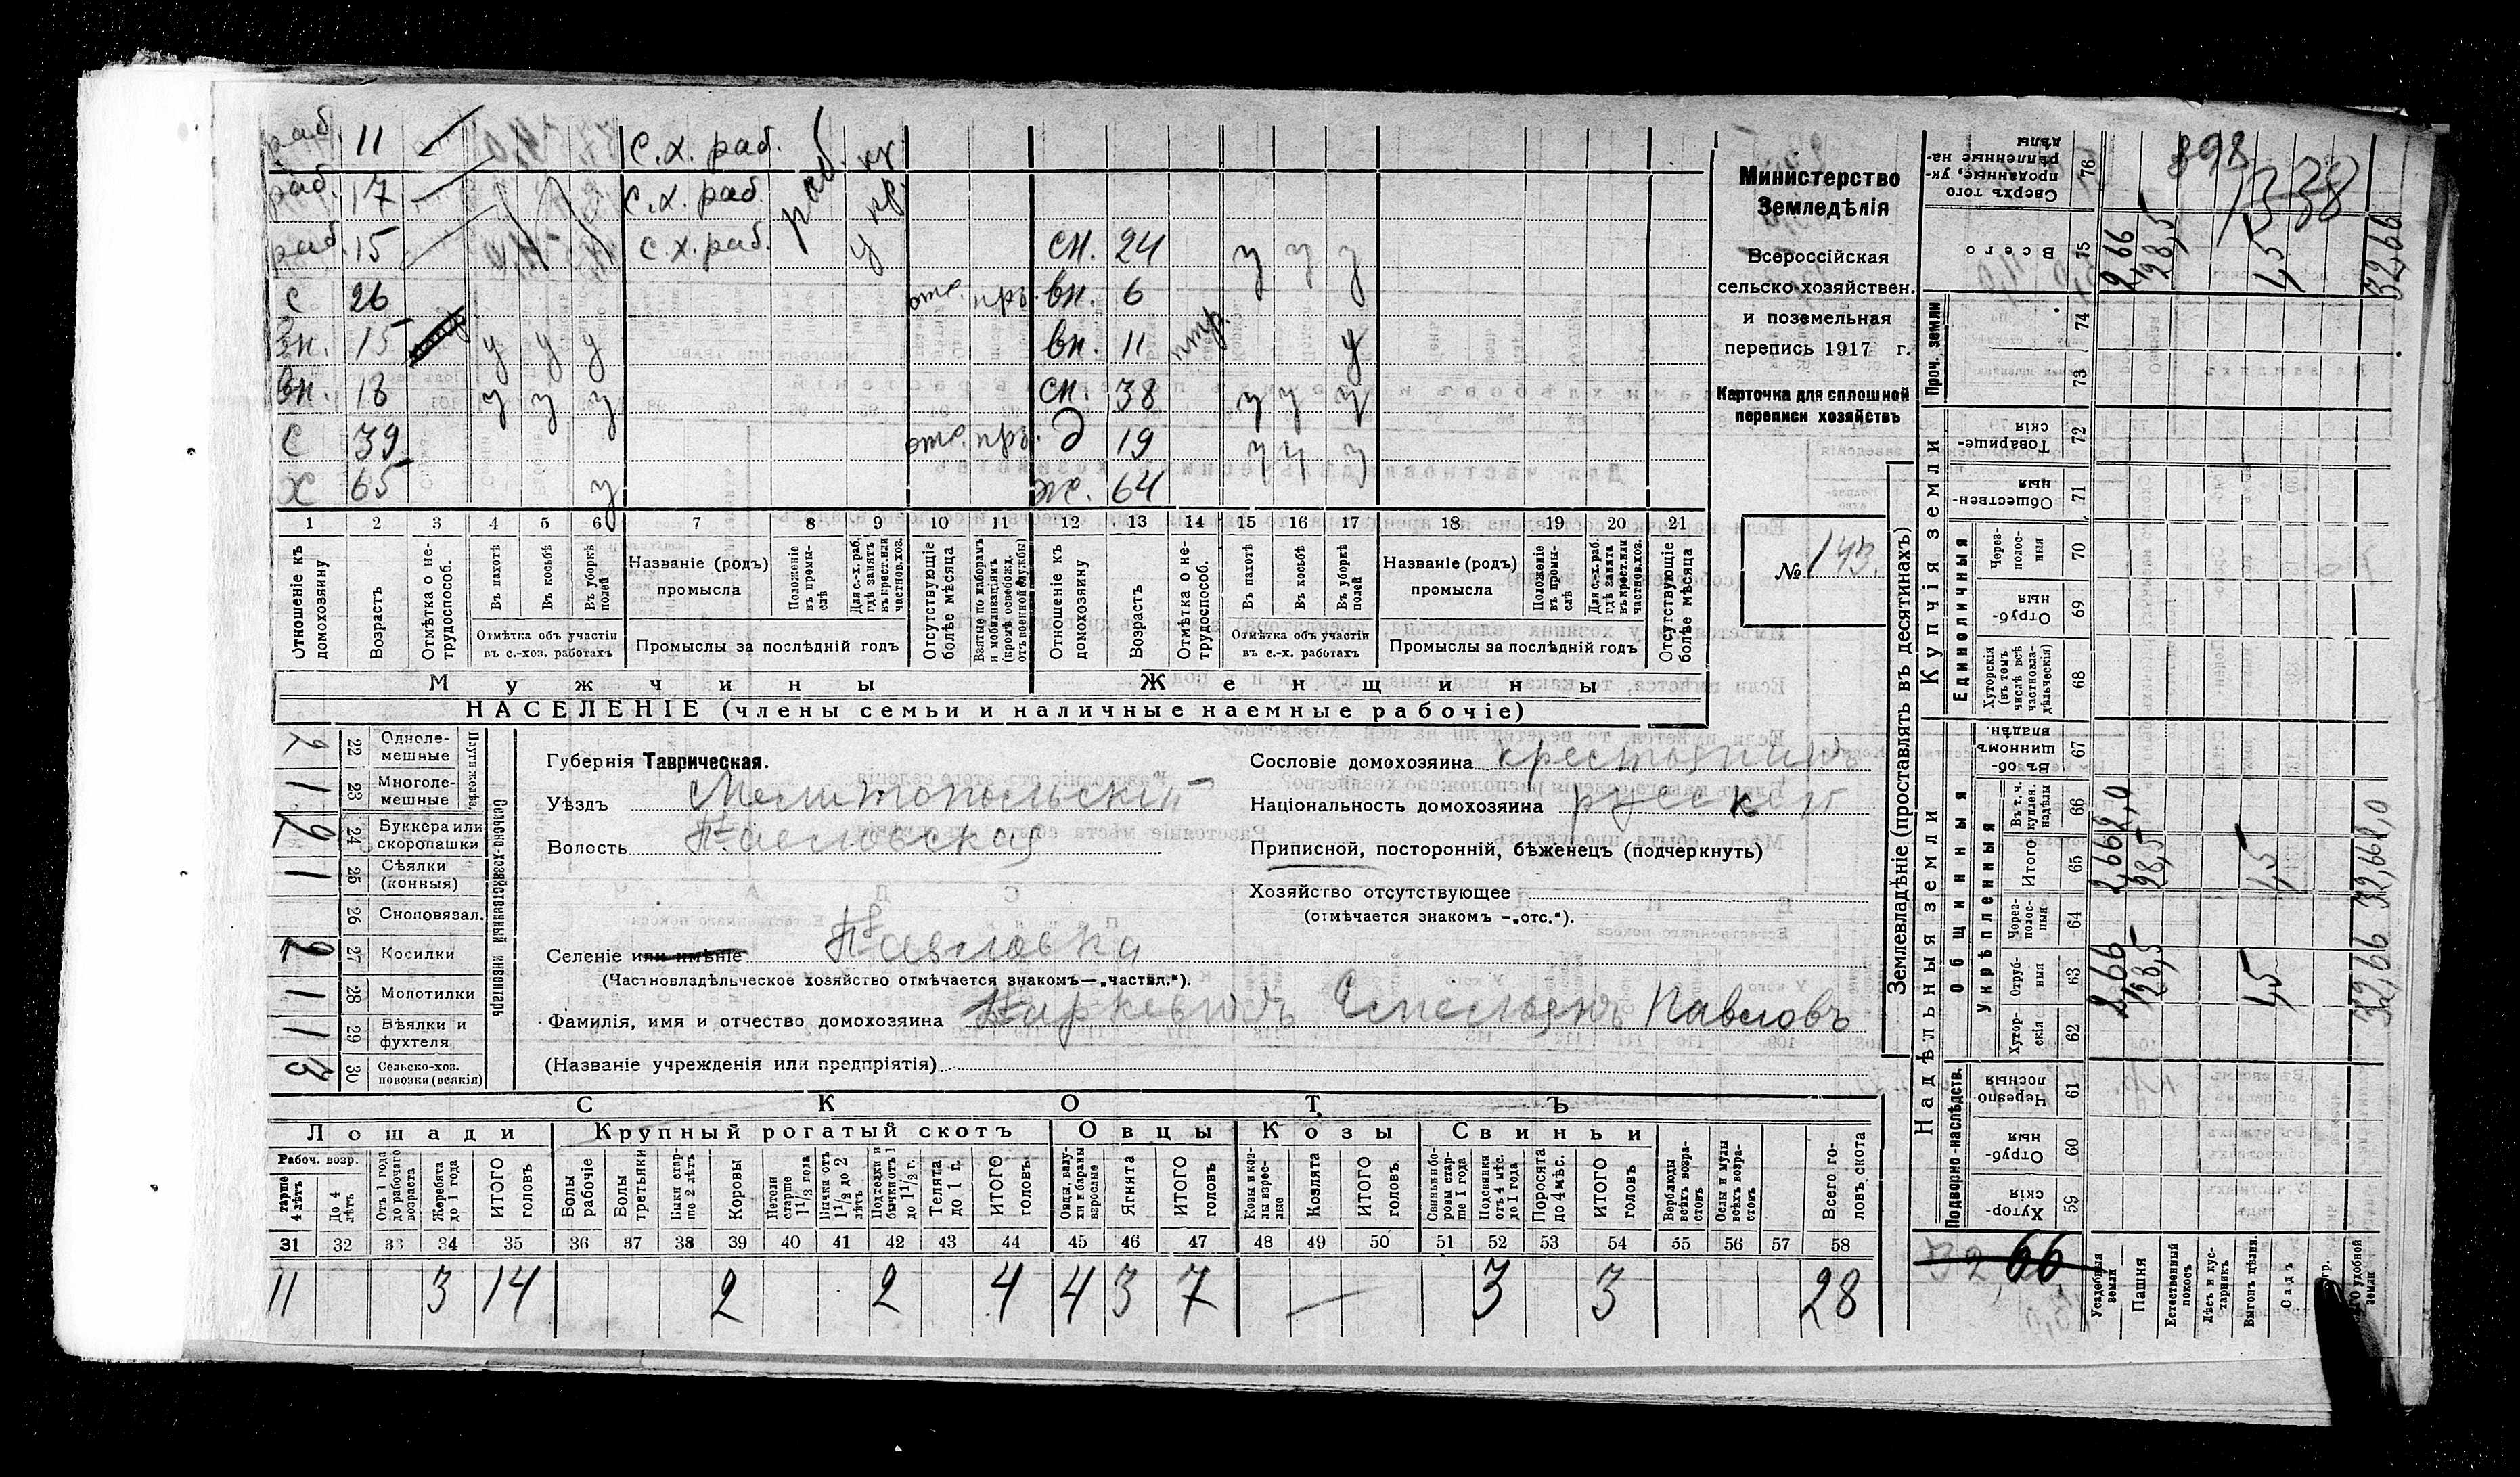 раб. 11 с.х. раб. раб. кр.
раб. 17 с.х. раб. кр.
раб. 15 с.х. раб. у сн. 24 у у у
с 26 отс. пр. вн. 6
вн. 15 у у у вн. 11 у
вн. 18 у у у сн. 38 у у у
с 39 отс. пр. д 19 у у у
х 65 у ж. 64
1 2 3 4 5 6 7 8 9 10 11 12 13 14 15 16 17 18 19 20 21
Отношеніе къ домохозяину
Возрастъ
Отмѣтка о не-трудоспособ.
Въ пахотѣ
Въ косьбѣ
Въ уборкѣ полей
Отмѣтка объ участіи въ с.-хоз. работахъ
Названіе (родъ) промысла
Положеніе въ промы-слѣ
Для с.-х. раб. гдѣ занятъ въ крест. или частнов. хоз.
Промыслы за послѣдній годъ
Отсутствующіе болѣе мѣсяца
Взятые по наборамъ и мобилизаціямъ (кромѣ освобожд. отъ военной службы)
Отношеніе къ домохозяину
Возрастъ
Отмѣтка о не-трудоспособ.
Въ пахотѣ
Въ косьбѣ
Въ уборкѣ полей
Отмѣтка объ участіи въ с.-х. работахъ
Названіе (родъ) промысла
Положеніе въ промы-слѣ
Для с.-х. раб. гдѣ занята въ крест. или частнов. хоз.
Промыслы за послѣдній годъ
Отсутствующіе болѣе мѣсяца
Мужчины Женщины
НАСЕЛЕНІЕ (члены семьи и наличные наемные рабочіе)
Министерство
Земледѣлія
Всероссійская
сельско-хозяйствен.
и поземельная
перепись 1917 г.
Карточка для сплошной
переписи хозяйствъ
№ 143.
Сельско-хозяйственный инвентарь
2 22 Однолемешные
1 23 Многолемешные
2 24 Буккера или скоропашки
1 25 Сѣялки (конныя)
26 Сноповязал.
2 27 Косилки
1 28 Молотилки
1 29 Вѣялки и фухтеля
3 30 Сельско-хоз. повозки (всякія)
Губернія Таврическая.
Уѣздъ Мелитопольскій
Волость Павловская
Селеніе или имѣніе Павловка
(Частновладѣльческое хозяйство отмѣчается знакомъ—„частвл.“).
Фамилія, имя и отчество домохозяина Емельянъ Павловъ
(Названіе учрежденія или предпріятія)
Сословіе домохозяина крестьянинъ
Національность домохозяина русскій
Приписной, посторонній, бѣженецъ (подчеркнуть)
Хозяйство отсутствующее
(отмѣчается знакомъ —„отс.“).
СКОТЪ
Лошади Крупный рогатый скотъ Овцы Козы Свиньи
Рабоч. возр.
тарше 4 лѣтъ
До 4 лѣтъ
Отъ 1 года до рабочаго возраста
Жеребята до 1 года
ИТОГО головъ
Волы рабочіе
Волы третьяки
Быки стар-ше 2 лѣтъ
Коровы
Нетели старше 1 1/2 года
Бычки отъ 1 1/2 до 2 лѣтъ
Подтелки и бычки отъ 1 до 1 1/2 г.
Телята до 1 г.
ИТОГО головъ
Овцы, валу-хи и бараны взрослые
Ягнята
ИТОГО головъ
Козы и коз-лы взрос-лые
Козлята
ИТОГО головъ
Свиньи и бо-ровы стар-ше 1 года
Подсвинки отъ 4 мѣс. до 1 года
Поросята до 4 мѣс.
ИТОГО головъ
Верблюды всѣхъ возра-стовъ
Ослы и мулы всѣхъ возра-стовъ
Всего го-ловъ скота
31 32 33 34 35 36 37 38 39 40 41 42 43 44 45 46 47 48 49 50 51 52 53 54 55 56 57 58
11 3 14 2 2 4 4 3 7 — 3 3 28
Землевладѣніе (проставлять въ десятинахъ)
Надѣльныя земли
Купчія земли
Проч. земли
Общинныя
Укрѣпленныя
Единоличныя
Подворно-наслѣдств.
Сверхъ того проданные, ук-рѣпленные на-дѣлы 76
Всего 75
74
73
Товарище-скія 72
Обществен-ныя 71
Через-полос-ныя 70
Отруб-ныя 69
Хуторскія (въ томъ числѣ всѣ частновла-дѣльческія) 68
Въ об-щинномъ владѣн. 67
Въ т. ч. куплен. надѣлы 66
Итого 65
Через-полос-ныя 64
Отруб-ныя 63
Хутор-скія 62
Черезпо-лосныя 61
Отруб-ныя 60
Хутор-скія 59
Усадебныя земли
Пашня
Естественный покосъ
Лѣсъ и кус-тарник.
Выгонъ цѣлин.
Садъ
898
1338
2,66 28,5 1,5 32,66
2,66 28,5 1,5 32,66
2,66 28,5 1,5 32,66
32,66